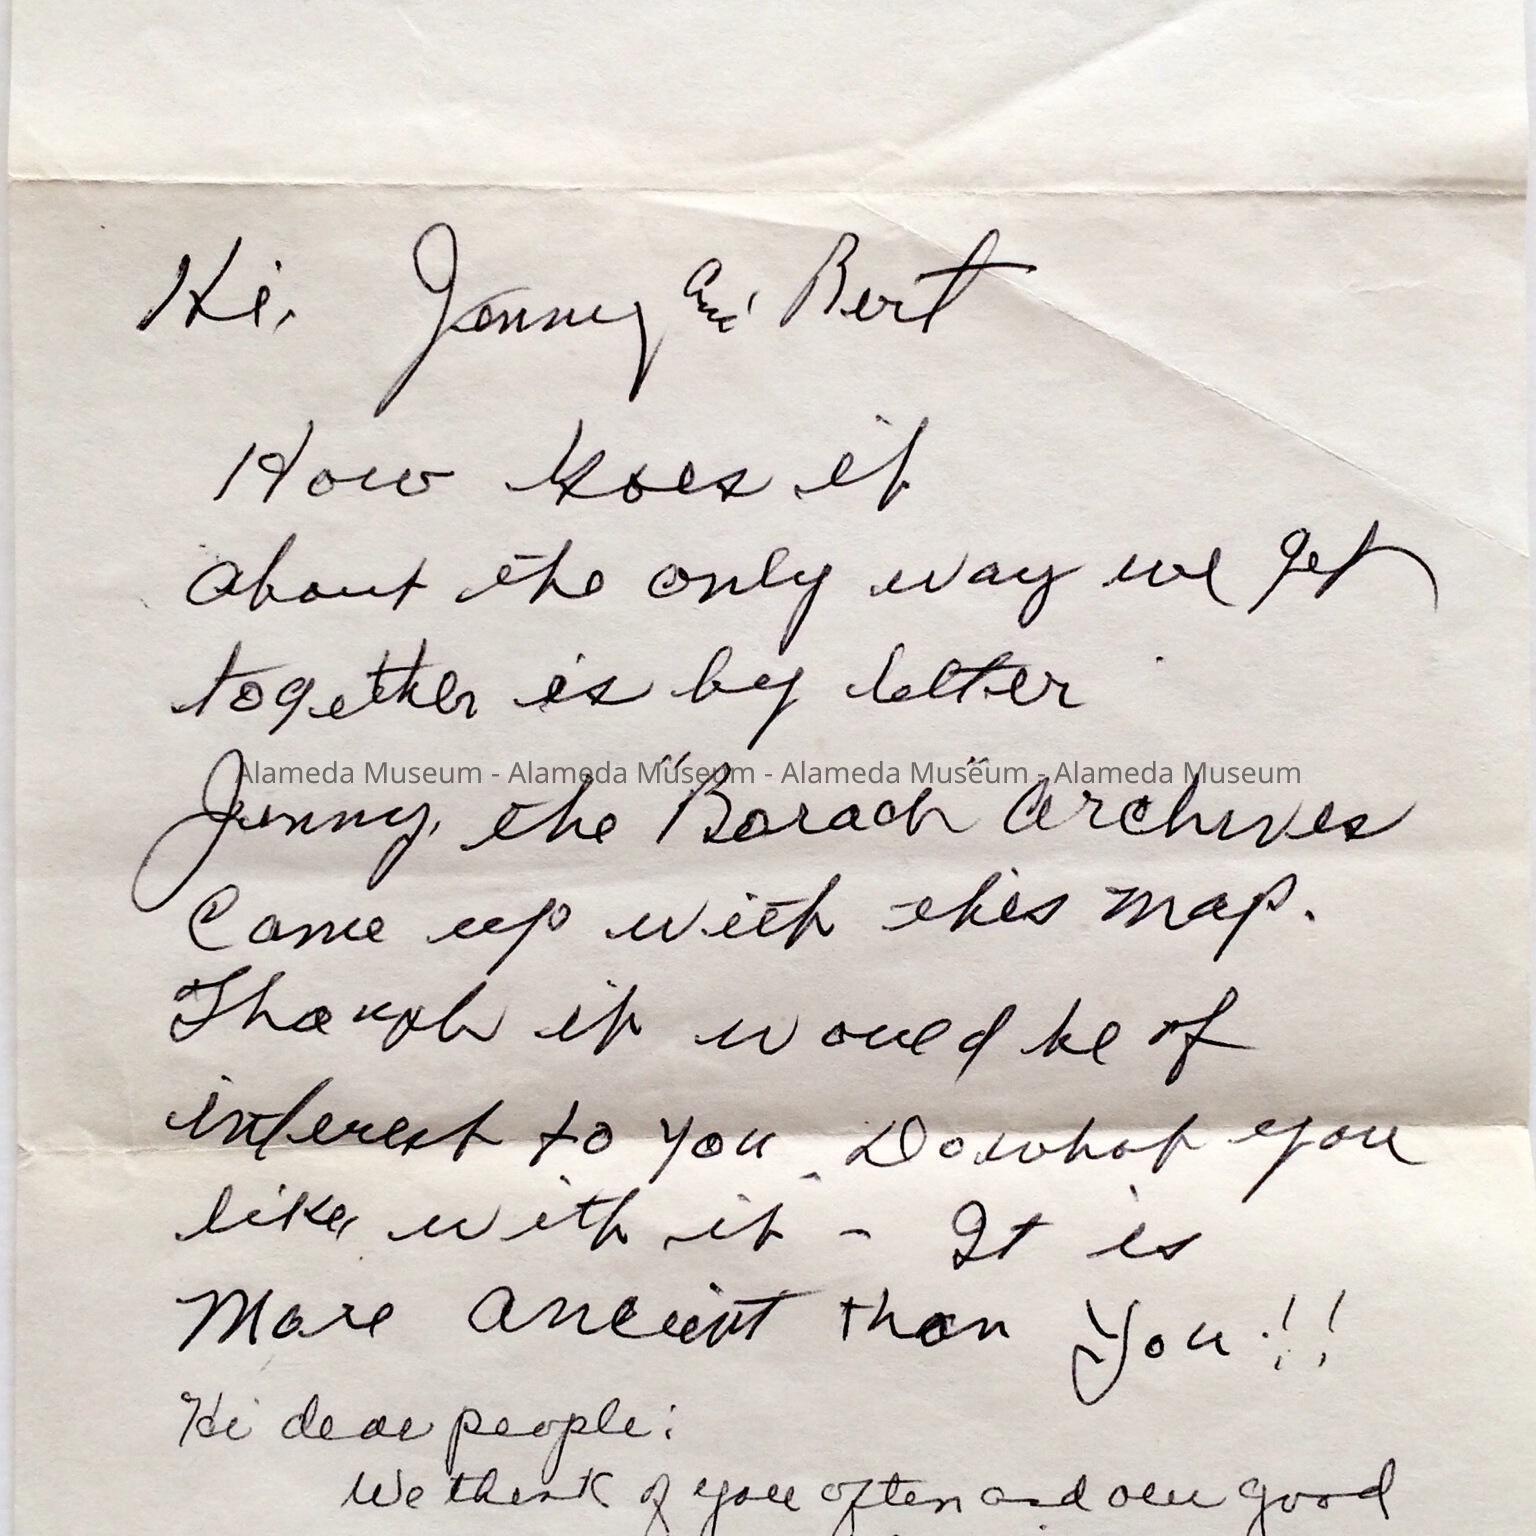 Hi, Jenny and Bert
How goes it
about the only way we get
together is by letter
Alameda Museum - Alameda Museum - Alameda Museum - Alameda Museum
Jenny, the "Barach" archives
Came up with this map.
Though it would be of
interest to you. Do what you
like, with it - It is
More Ancient than You!!
Hi dear people:
We think of you often and our good